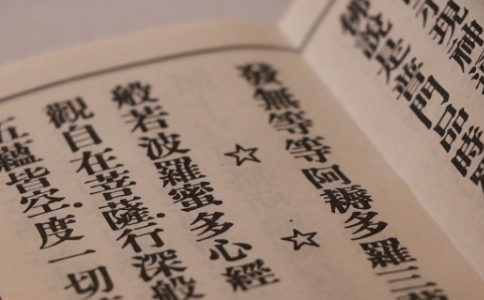 現神通
佛說是普門品時眾
發無等等阿耨多羅三
☆ ☆
般若波羅蜜多心經
觀自在菩薩.行深般
五蘊皆空.度一切